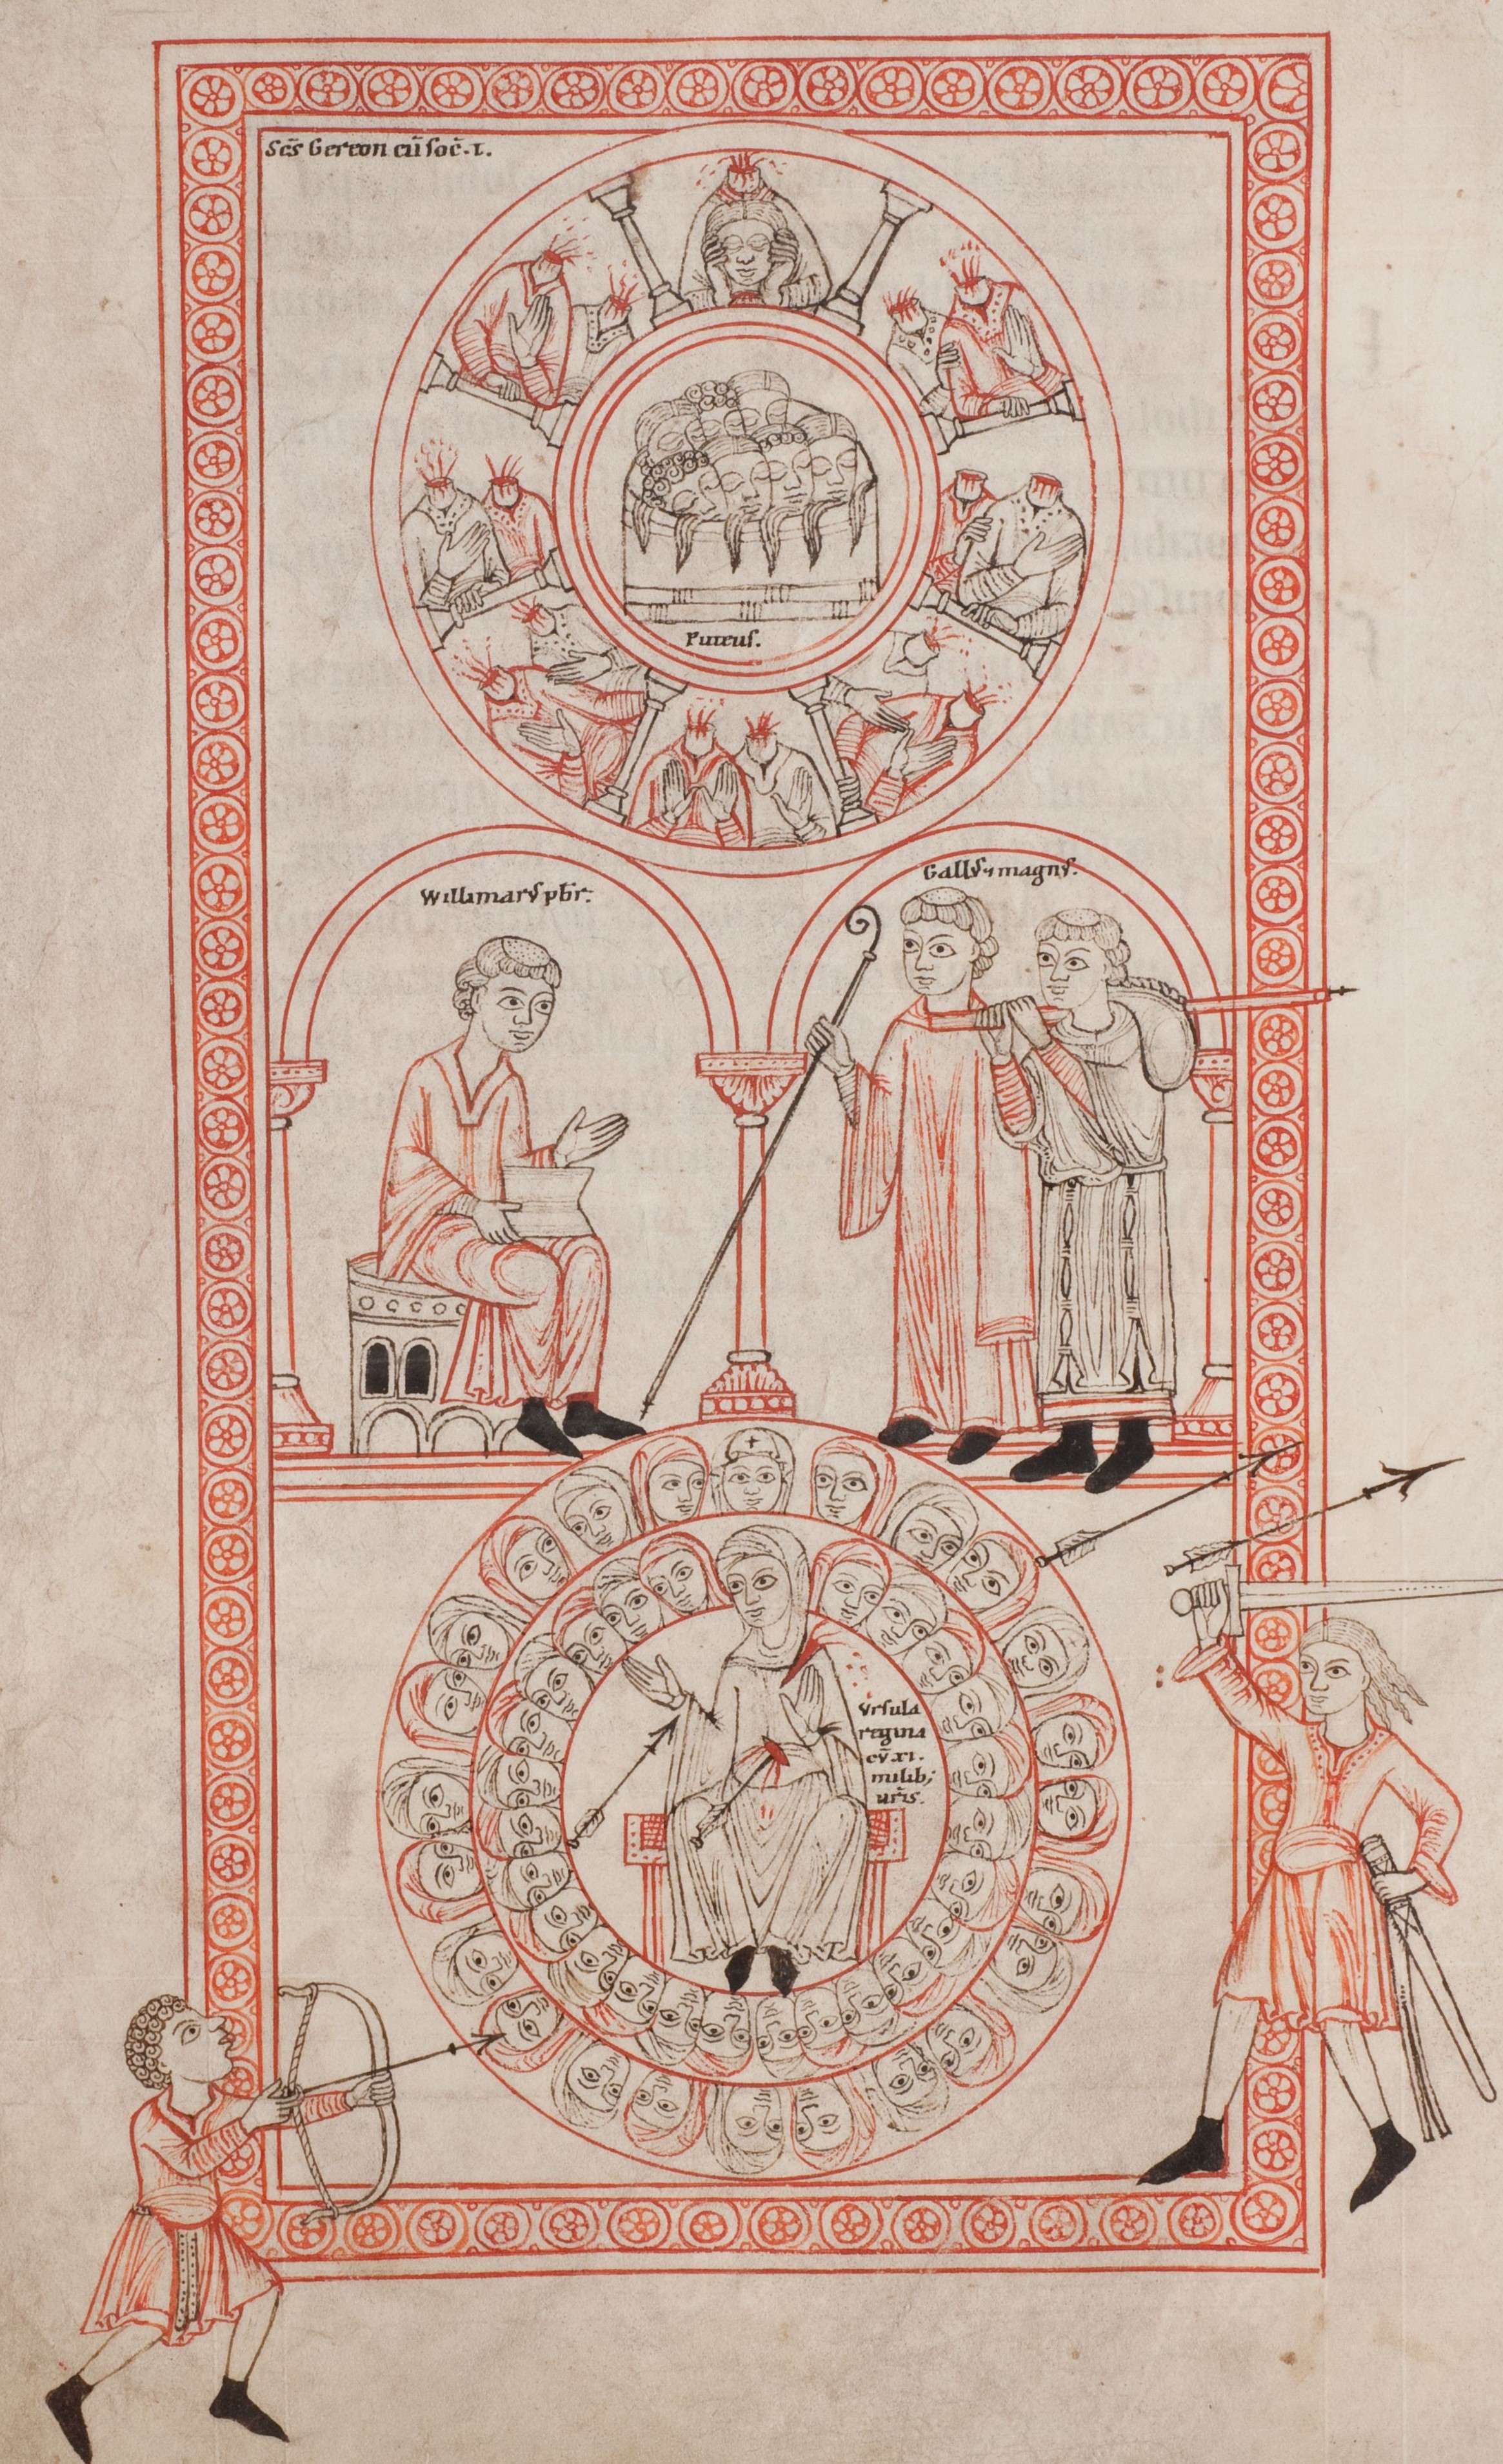 Sc̄s Gereon cū soc̄. ı.
Puteus.
Willimarꝰ pb̄r.
Gallꝰ ⁊ magnꝰ.
Vrsula
regina
cv̄ .xı.
milib;
uir̄s.